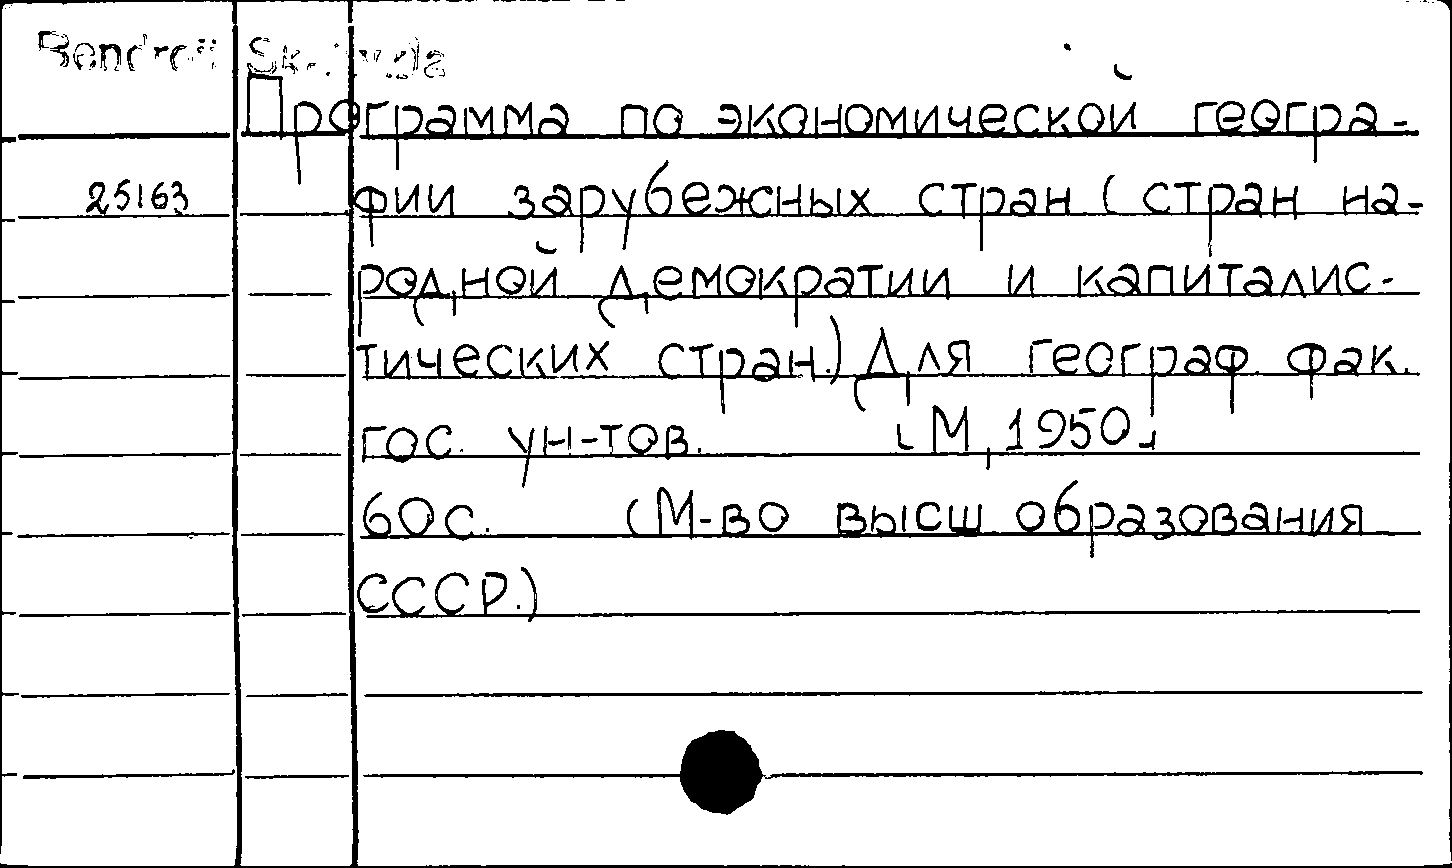 Программа по экономической геогра-
25163 фии зарубежных стран (стран на-
родной демократии и капиталис-
тических стран.) Для географ. фак.
гос. ун-тов. [М, 1950]
60с. (М-во высш образования
СССР.)